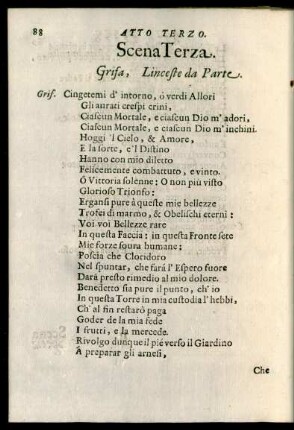 88 ATTO TERZO.
Scena Terza.
Grifa, Linceste da Parte.
Grif. Cingetemi d' intorno, ó verdi Allori
Gli aurati crespi crini,
Ciascun Mortale, e ciascun Dio m' adori,
Ciascun Mortale, e ciascun Dio m' inchini.
Hoggi 'l Cielo, & Amore,
E la sorte, e 'l Distino
Hanno con mio diletto
Felicemente combattuto, e vinto.
Ô Vittoria solenne: O non più visto
Glorioso Trionfo:
Ergansi pure à queste mie bellezze
Trofei di marmo, & Obelischi eterni:
Voi voi Bellezze rare
In questa Faccia: in questa Fronte sete
Mie forze soura humane:
Poscia che Clocidoro
Nel spuntar, che farà l' Espero fuore
Darà presto rimedio al mio dolore.
Benedetto sia pure il punto, ch' io
In questa Torre in mia custodia l' hebbi,
Ch' al fin restarò paga
Goder de la mia fede
I frutti, e la mercede.
Rivolgo dunque il pié verso il Giardino
Á preparar gli arnesi,
Che